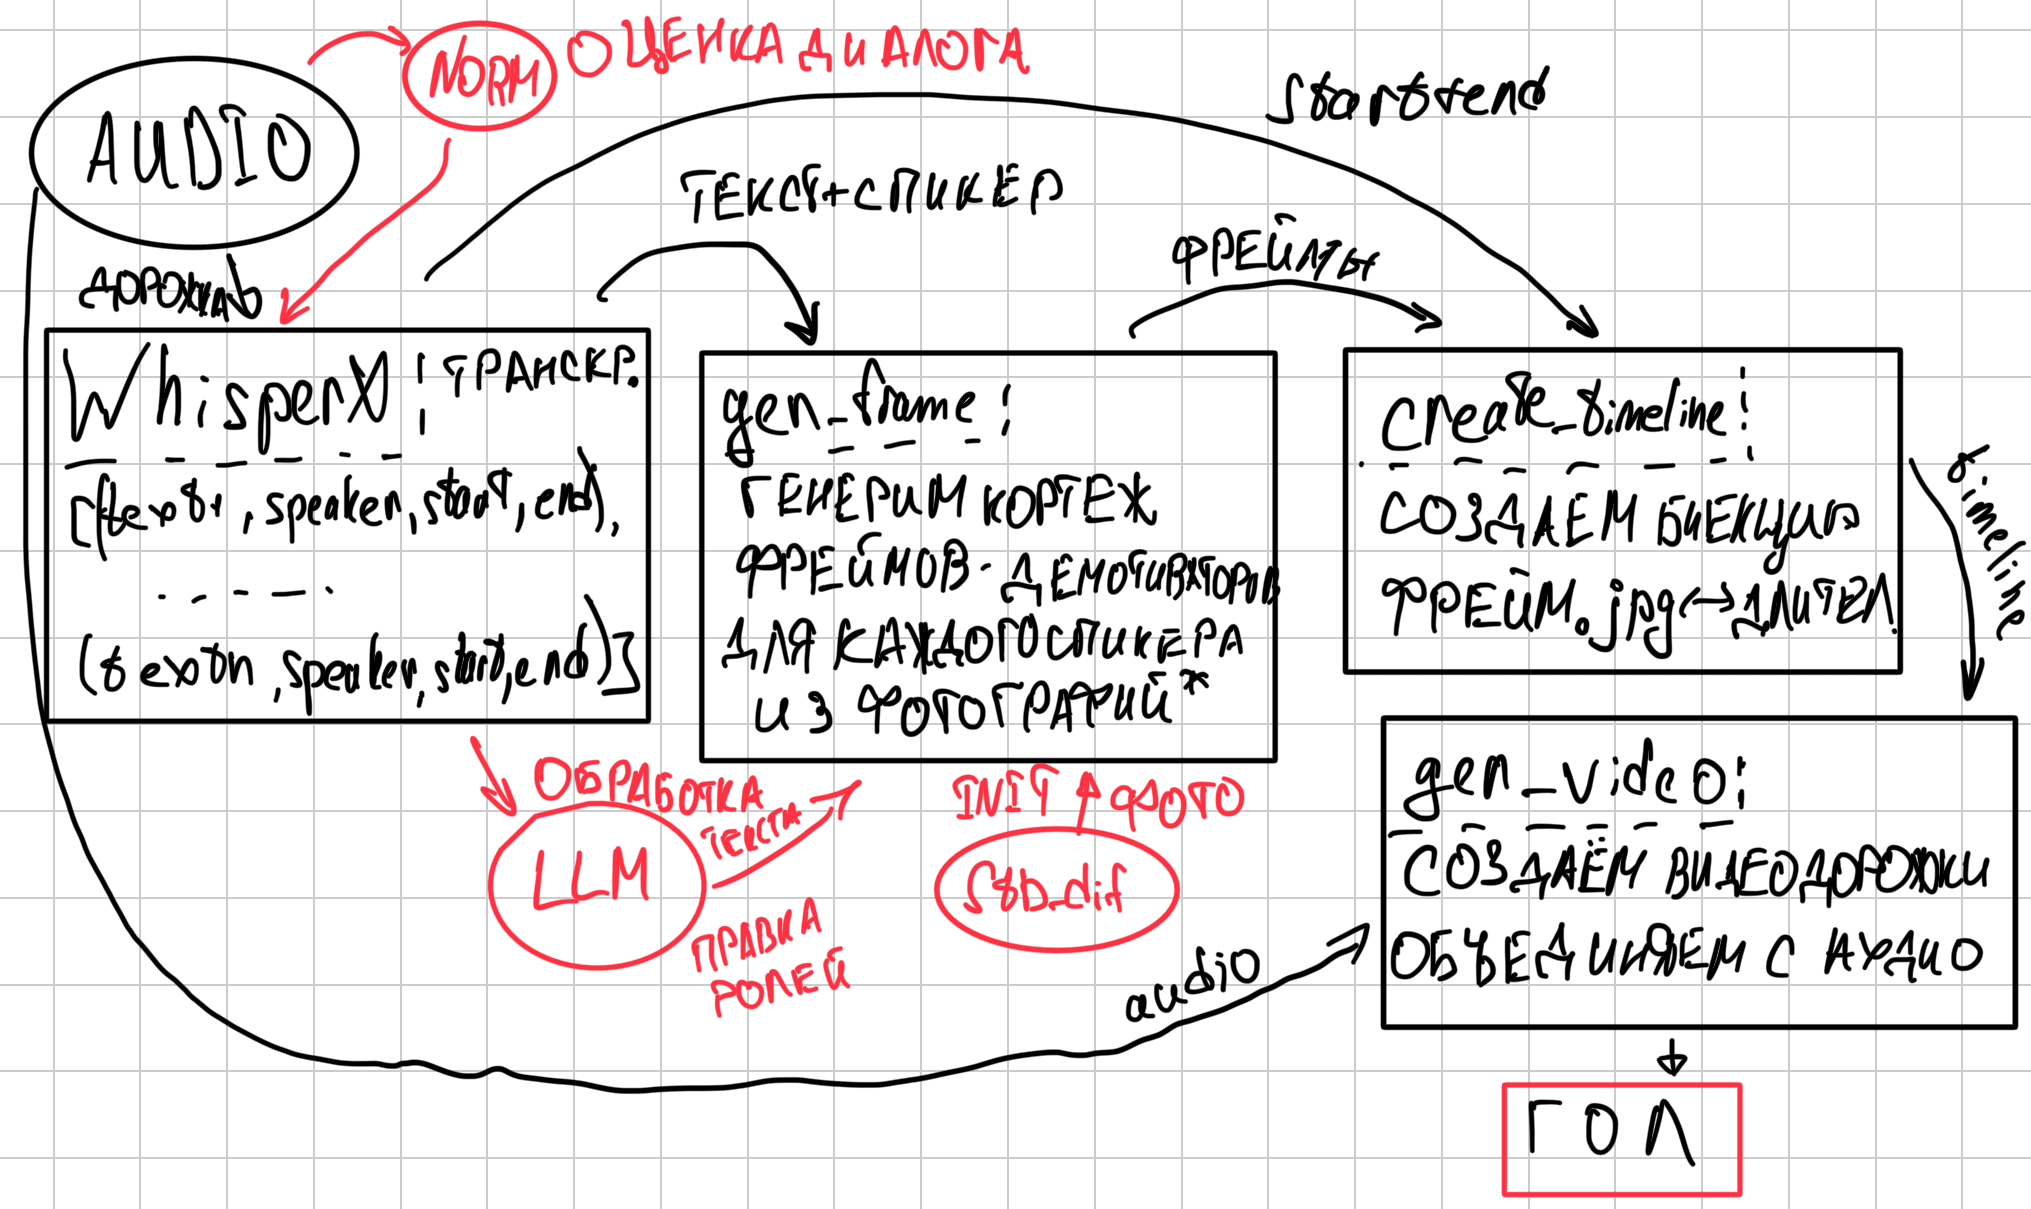 AUDIO
NORM
ОЦЕНКА ДИАЛОГА
start+end
ТЕКСТ+СПИКЕР
ФРЕЙМЫ
ДОРОЖКА
WhisperX: ТРАНСКР.
[(text1, speaker, start, end),
.....
(textn, speaker, start, end)]
gen_frame:
ГЕНЕРИМ КОРТЕЖ
ФРЕЙМОВ-ДЕМОТИВАТОРОВ
ДЛЯ КАЖДОГО СПИКЕРА
ИЗ ФОТОГРАФИЙ*
create_timeline:
СОЗДАЕМ БИЕКЦИЮ
ФРЕЙМ.jpg↔ДЛИТЕЛ.
timeline
ОБРАБОТКА
ТЕКСТА
LLM
ПРАВКА
РОЛЕЙ
INIT ФОТО
Stb_dif
audio
gen_video:
СОЗДАЁМ ВИДЕОДОРОЖКИ
ОБЪЕДИНЯЕМ С АУДИО
ГОЛ